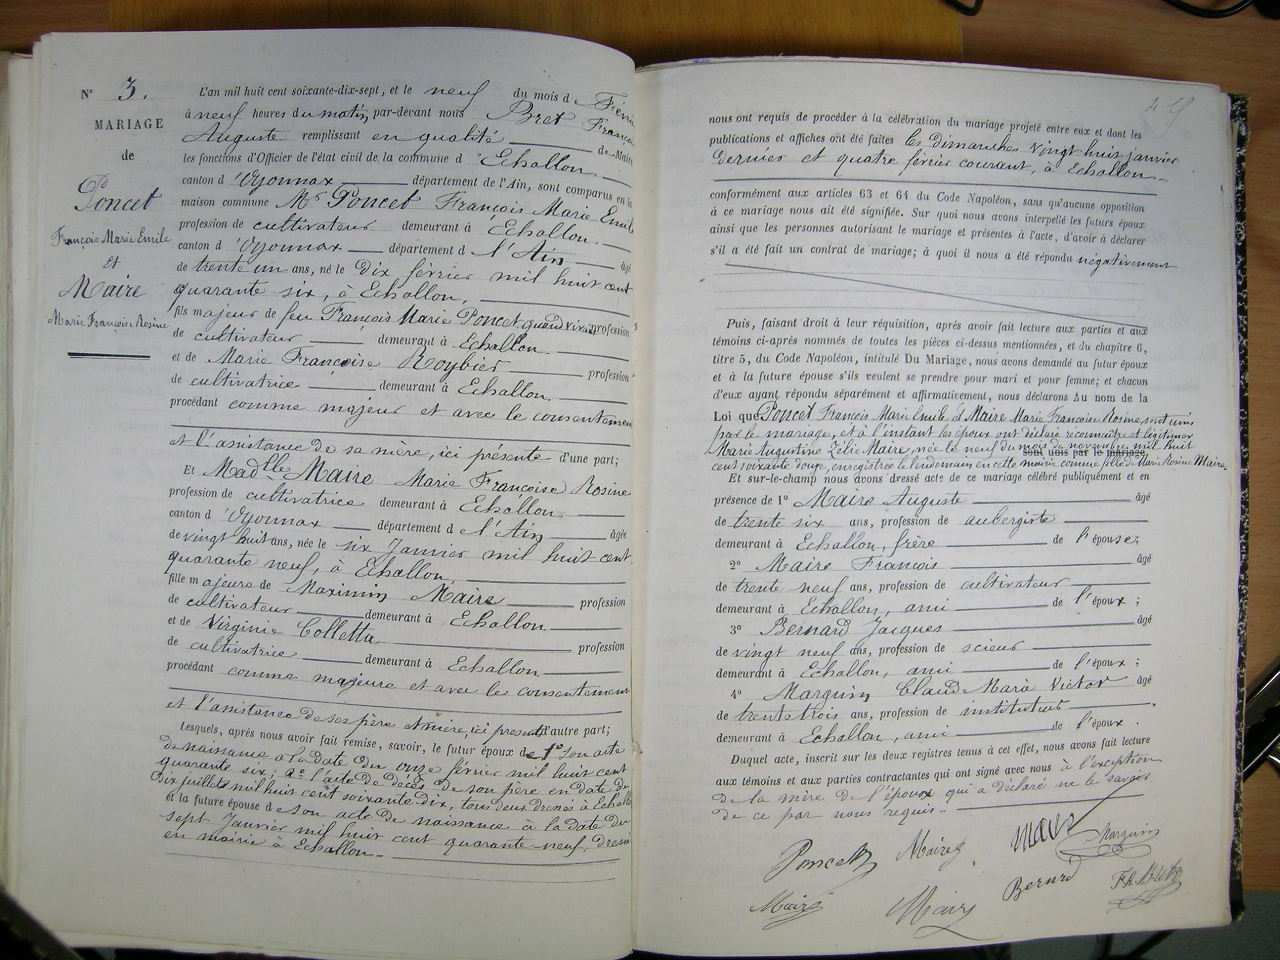 N° 3.
MARIAGE
de
Poncet
François Marie Emile
et
Maire
Marie Françoise Rosine
L'an mil huit cent soixante-dix-sept, et le neuf du mois d Février
à neuf heures du matin, par-devant nous Bret François
Auguste remplissant en qualité de Maire
les fonctions d'Officier de l'état civil de la commune d'Echallon
canton d'Oyonnax département de l'Ain, sont comparus en la
maison commune Mr Poncet François Marie Emile
profession de cultivateur demeurant à Echallon.
canton d'Oyonnax département d l'Ain âgé
de trente un ans, né le Dix février mil huit cent
quarante six, à Echallon,
fils majeur de feu François Marie Poncet quand vivait profession
de cultivateur demeurant à Echallon.
et de Marie Françoise Roybier profession
de cultivatrice demeurant à Echallon.
procédant comme majeur et avec le consentement
et l'assistance de sa mère, ici présente d'une part;
Et Madlle Maire Marie Françoise Rosine
profession de cultivatrice demeurant à Echallon.
canton d'Oyonnax département d l'Ain âgée
de vingt huit ans, née le six Janvier mil huit cent
quarante neuf, à Echallon,
fille majeure de Maximin Maire profession
de cultivateur demeurant à Echallon
et de Virginie Colletta profession
de cultivatrice demeurant à Echallon
procédant comme majeure et avec le consentement
et l'assistance de ses père et mère, ici présents d'autre part;
Lesquels, après nous avoir fait remise, savoir, le futur époux de 1° son acte
de naissance à la date du onze février mil huit cent
quarante six; 2° l'acte de décès de son père en date du
dix juillet mil huit cent soixante dix, tous deux dressés à Echallon
et la future épouse de son acte de naissance à la date du
sept Janvier mil huit cent quarante-neuf, dressé
en mairie à Echallon.
nous ont requis de procéder à la célébration du mariage projeté entre eux et dont les
publications et affiches ont été faites les dimanches vingt huit janvier
dernier et quatre février courant, à Echallon.
conformément aux articles 63 et 64 du Code Napoléon, sans qu'aucune opposition
à ce mariage nous ait été signifiée. Sur quoi nous avons interpellé les futurs époux
ainsi que les personnes autorisant le mariage et présentes à l'acte, d'avoir à déclarer
s'il a été fait un contrat de mariage; à quoi il nous a été répondu négativement
Puis, faisant droit à leur réquisition, après avoir fait lecture aux parties et aux
témoins ci-après nommés de toutes les pièces ci-dessus mentionnées, et du chapitre 6,
titre 5, du Code Napoléon, intitulé Du Mariage, nous avons demandé au futur époux
et à la future épouse s'ils veulent se prendre pour mari et pour femme; et chacun
d'eux ayant répondu séparément et affirmativement, nous déclarons Au nom de la
Loi que Poncet François Marie Emile et Maire Marie Françoise Rosine, sont unis
par le mariage, et à l'instant les époux ont déclaré reconnaître et légitimer
Marie Augustine Zélie Maire, née le neuf du mois de novembre mil huit
sont unis par le mariage.
cent soixante douze, enregistrée le lendemain en cette mairie comme fille de Marie Rosine Maire.
Et sur-le-champ nous avons dressé acte de ce mariage célébré publiquement et en
présence de 1° Maire Auguste âgé
de trente six ans, profession de aubergiste
demeurant à Echallon, frère de l'épouse;
2° Maire François âgé
de trente neuf ans, profession de cultivateur
demeurant à Echallon, ami de l'époux;
3° Bernard Jacques âgé
de vingt neuf ans, profession de scieur
demeurant à Echallon, ami de l'époux;
4° Marquin Claude Marie Victor âgé
de trente trois ans, profession de instituteur
demeurant à Echallon, ami de l'époux.
Duquel acte, inscrit sur les deux registres tenus à cet effet, nous avons fait lecture
aux témoins et aux parties contractantes qui ont signé avec nous à l'exception
de la mère de l'époux qui a déclaré ne le savoir
de ce par nous requis.
Poncet Maire Maire Marquin
Maire Maire Bernard